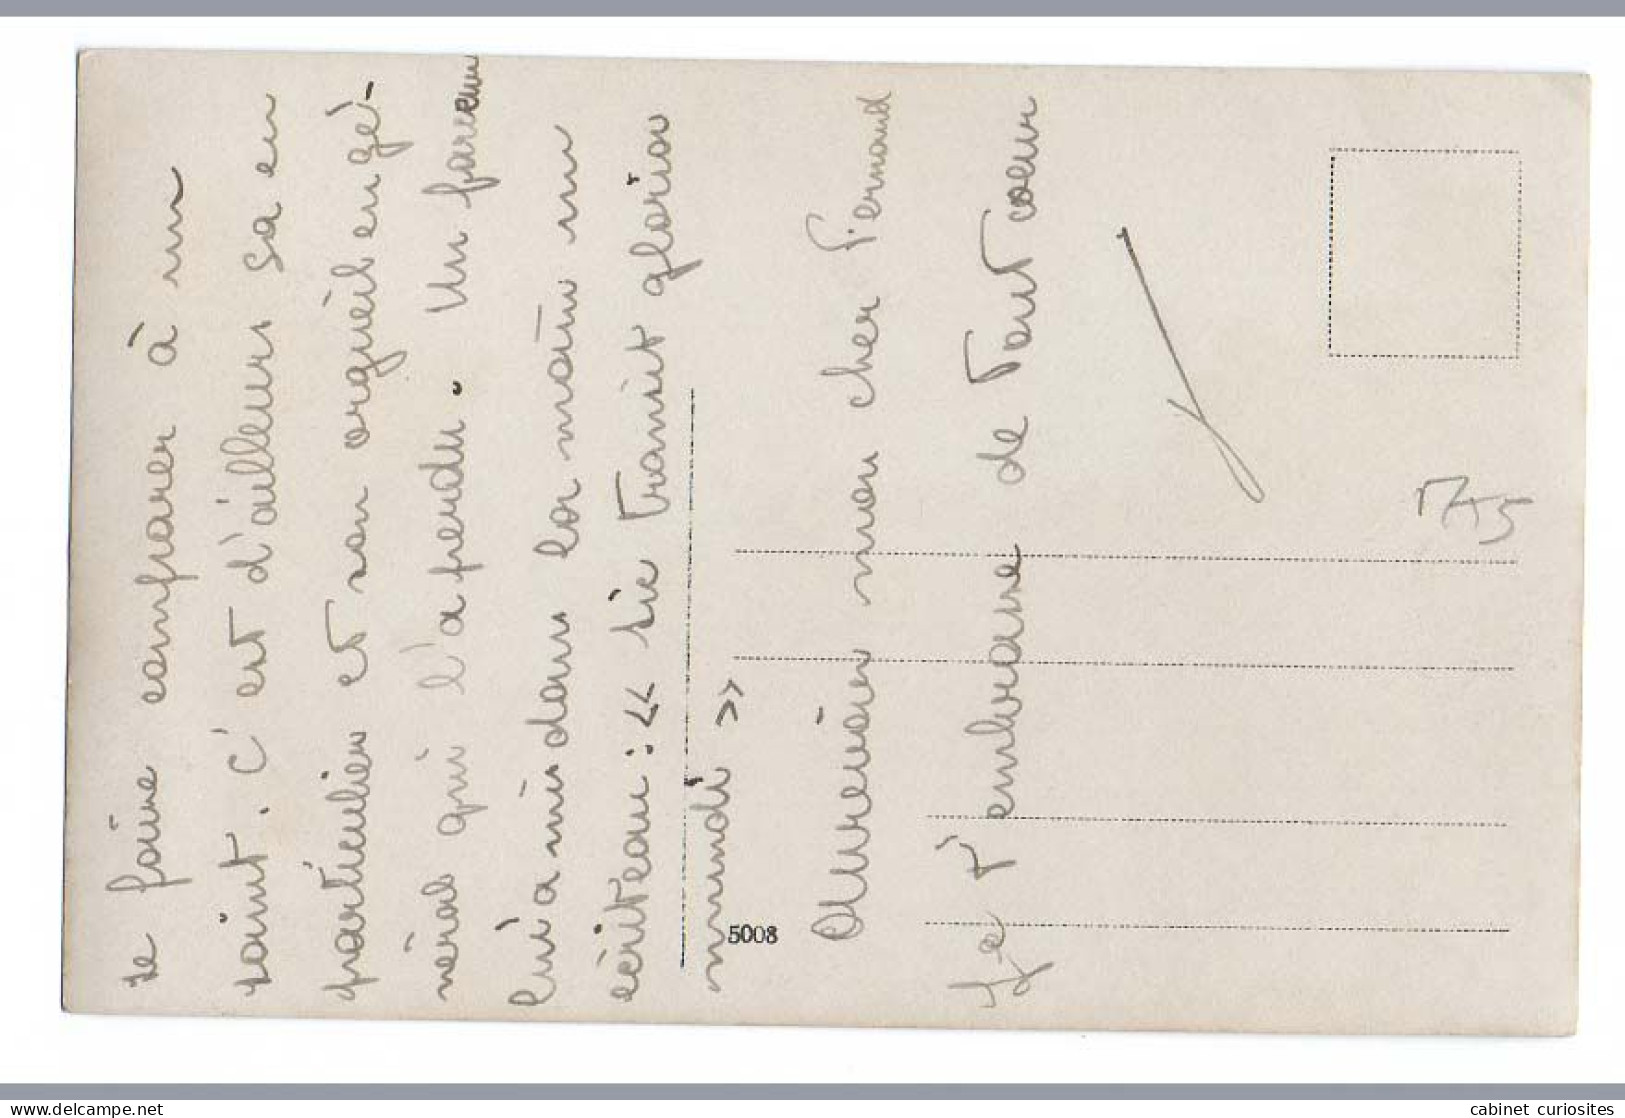 se faire comparer à un
saint. C'est d'ailleurs sa en
particulier et son orguèil en gé-
néral qui l'a perdu. Un farceur
lui a mis dans les mains un
écriteau : << Sic transit gloria
mundi >>
Aurevoir mon cher Fernand
Je t'embrasse de tout coeur
5008
www.delcampe.net
cabinet curiosites